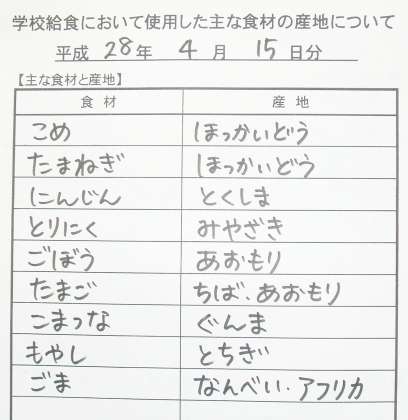 学校給食において使用した主な食材の産地について
平成 28 年 4 月 15 日分
【主な食材と産地】
食 材 産 地
こめ ほっかいどう
たまねぎ ほっかいどう
にんじん とくしま
とりにく みやざき
ごぼう あおもり
たまご ちば、あおもり
こまつな ぐんま
もやし とちぎ
ごま なんべい・アフリカ